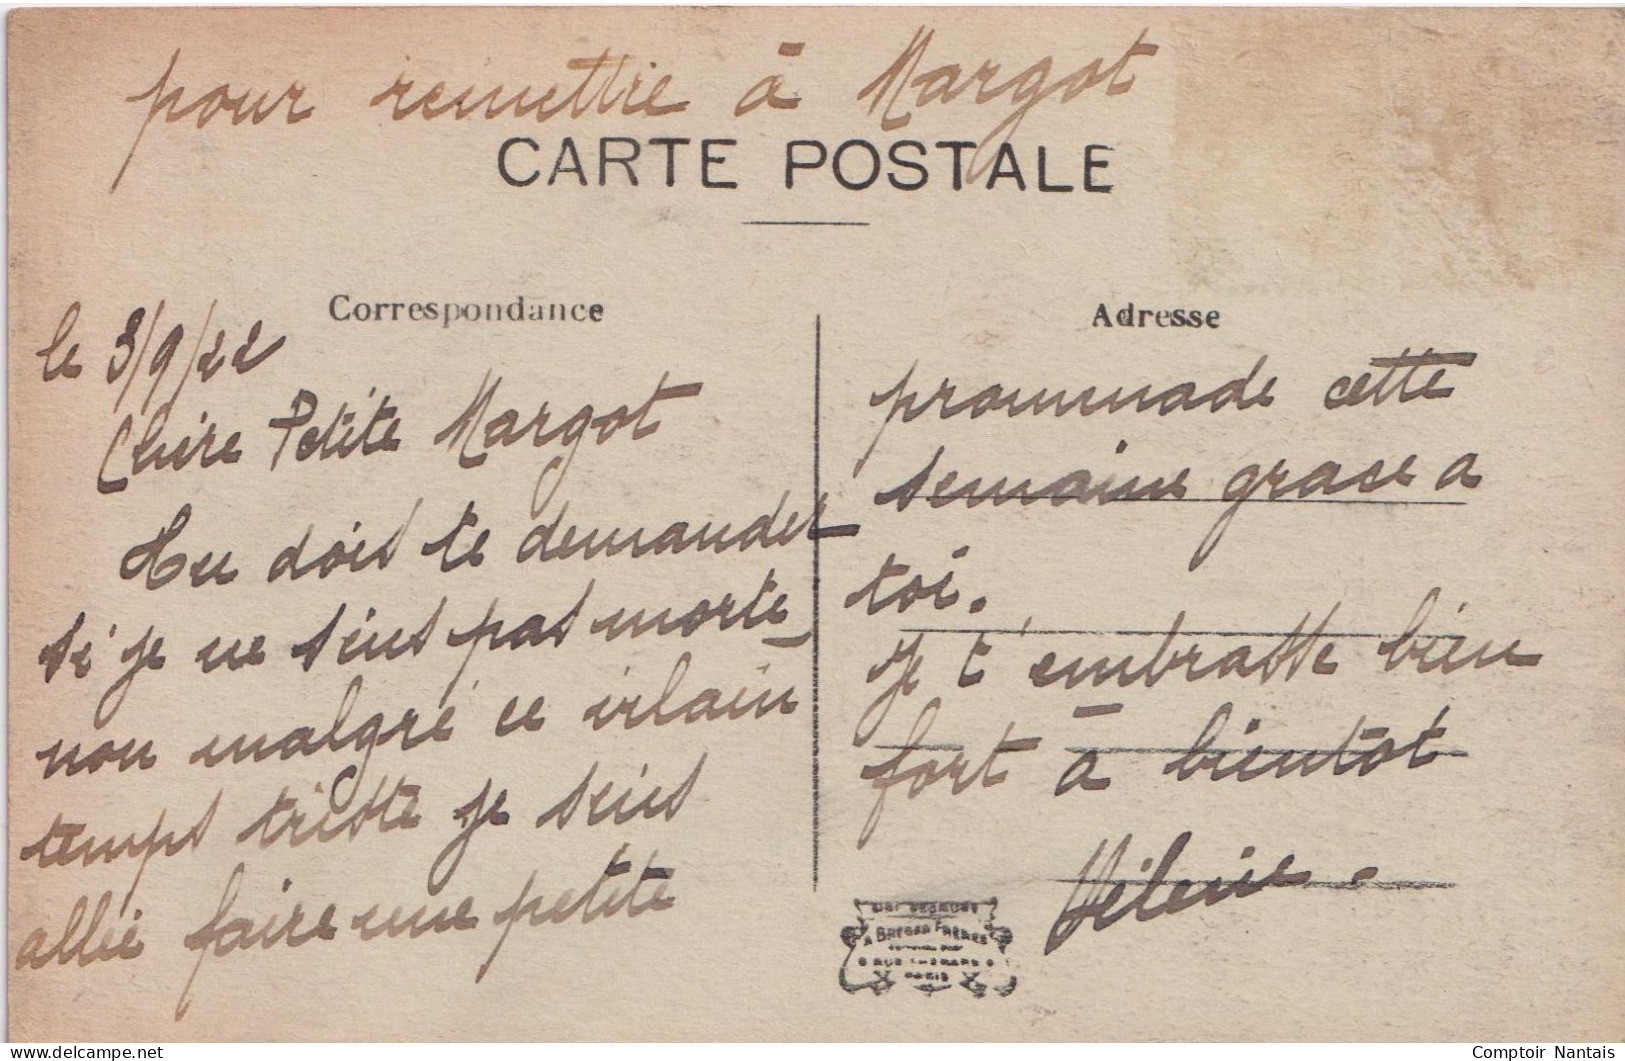 pour remettre à Margot
CARTE POSTALE
Correspondance
le 3/9/22
Chère Petite Margot
Tu dois te demander
si je ne suis pas morte
non malgré ce vilain
temps triste je suis
allée faire une petite
Adresse
promenade cette
semaine grace a
toi.
je t'embrasse bien
fort à bientot
Hélène.
A BREGER FRÈRES
PARIS
Comptoir Nantais
www.delcampe.net